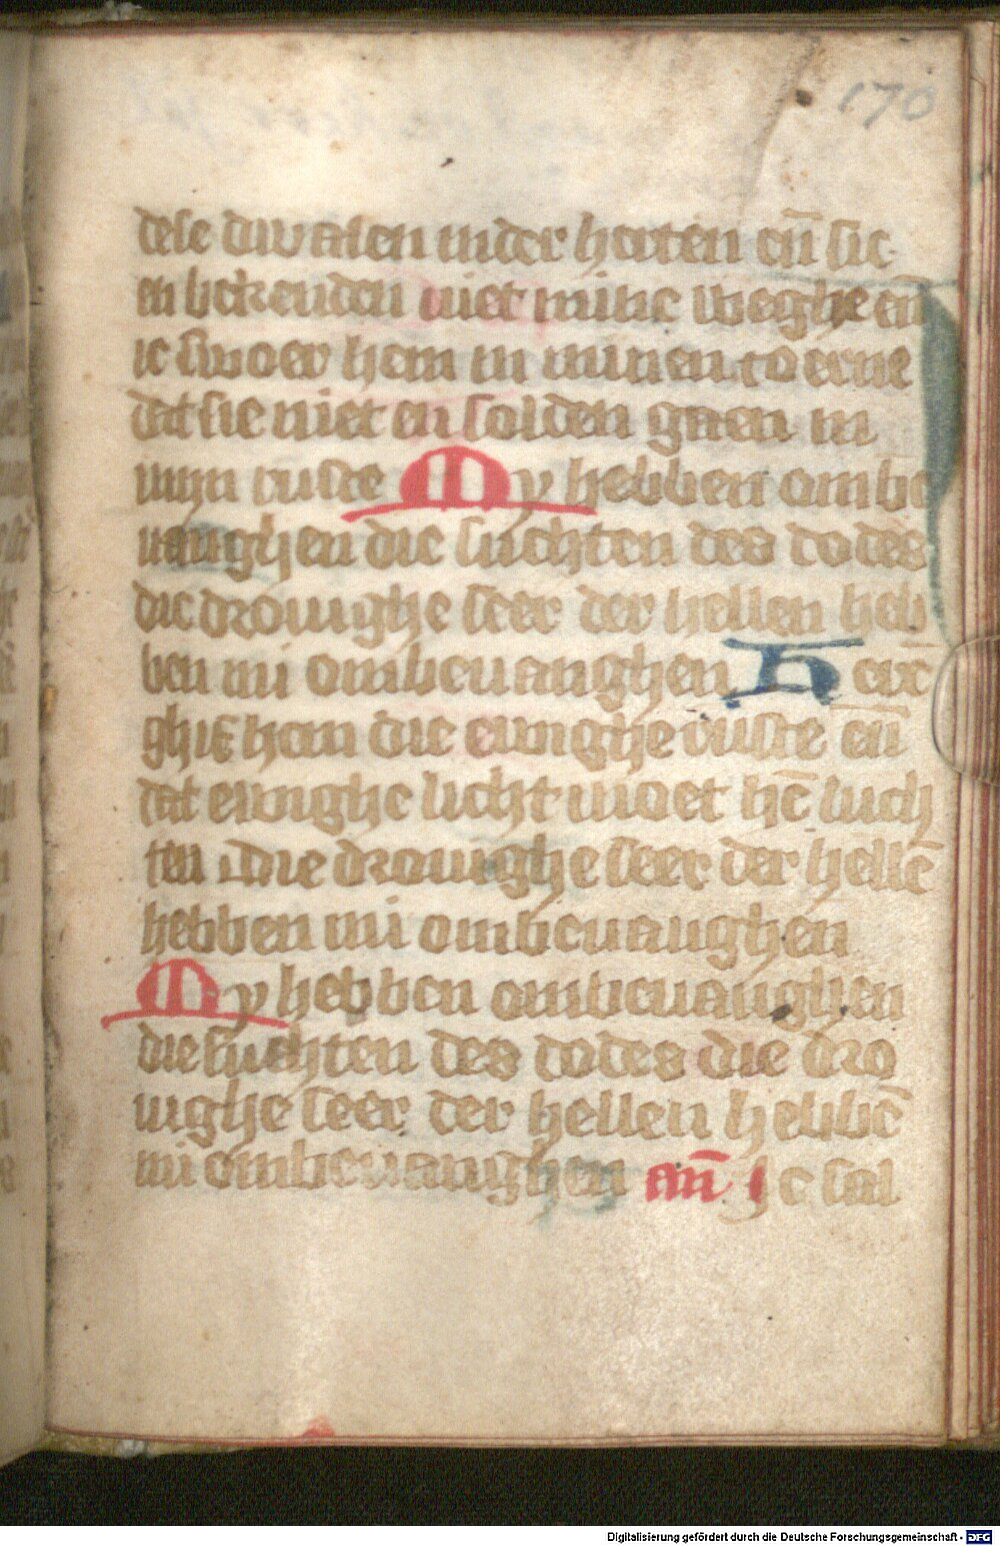 170
dese duvalen in der herten en̄ sie
en bekenden niet mine weghe en̄
ic swoer hem in minen toerne
dat sie niet en solden gaen in
mijn ruste My hebben ombe
uanghen die suchten des dodes
die drouighe seer der hellen heb
ben mi ombeuanghen Here
ghif hem die ewighe ruste en̄
dat ewighe licht moet hē luch
ten Die drouighe seer der hellē
hebben mi ombeuanghen
My hebben ombeuanghen
die suchten des dodes die dro
uighe seer der hellen hebbē
mi ombeuanghen an̄ Ic sal
Digitalisierung gefördert durch die Deutsche Forschungsgemeinschaft - DFG